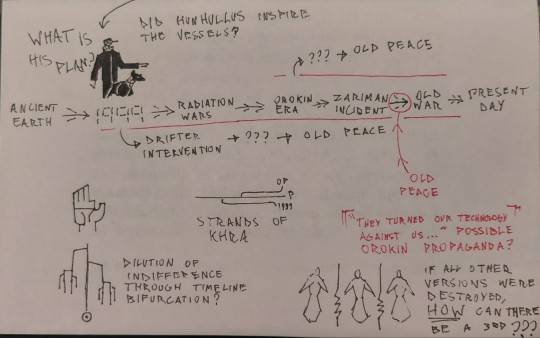 WHAT IS
HIS PLAN?
DID HUNHULLUS INSPIRE
THE VESSELS?
??? → OLD PEACE
ANCIENT
EARTH
1999
RADIATION
WARS
OROKIN
ERA
ZARIMAN
INCIDENT
OLD
WAR
PRESENT
DAY
DRIFTER
INTERVENTION
→ ??? → OLD PEACE
OLD
PEACE
OP
P
1999
STRANDS OF
KHRA
"THEY TURNED OUR TECHNOLOGY
AGAINST US..." POSSIBLE
OROKIN PROPAGANDA?
DILUTION OF
INDIFFERENCE
THROUGH TIMELINE
BIFURCATION?
IF ALL OTHER
VERSIONS WERE
DESTROYED,
HOW CAN THERE
BE A 3RD ???